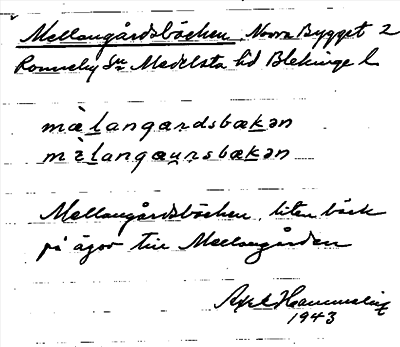 Mellangårdsbäcken, Norra Bygget 2
Ronneby Sn Medelsta hd Blekinge l
mälangardsbækən
mèlangæursbækən
Mellangårdsbäcken, liten bäck
på ägor till Mellangården
Axel
1943